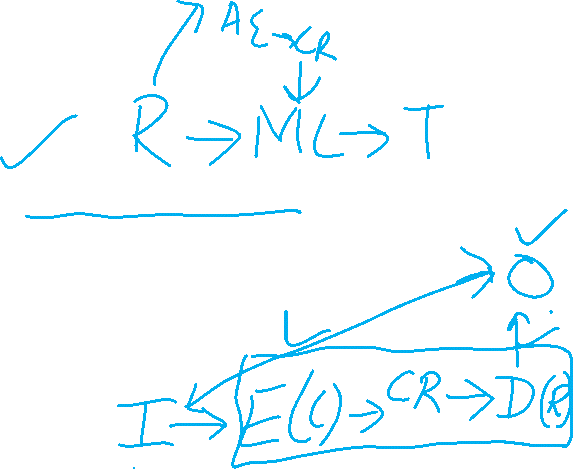 AE → CR
R → ML → T
O
L
I → E(C) → CR → D(R)